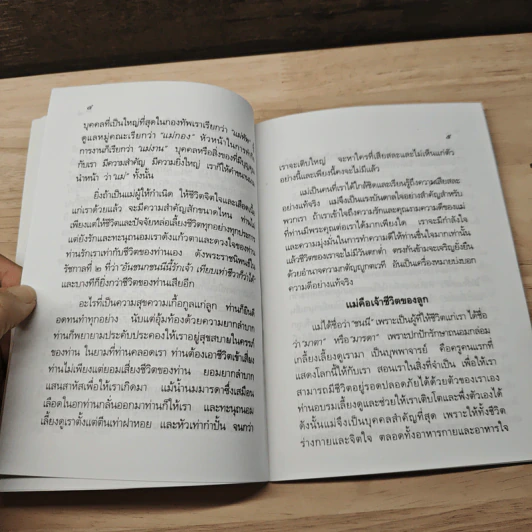 ๔
บุคคลที่เป็นใหญ่ที่สุดในกองทัพเราเรียกว่า "แม่ทัพ"
ดูแลหมู่คณะเรียกว่า "แม่กอง" หัวหน้าในการ
การงานก็เรียกว่า "แม่งาน" บุคคลหรือสิ่งของที่มีบุญคุณ
กับเรา มีความสำคัญ มีความยิ่งใหญ่ เราก็ให้คำ
นำหน้า ว่า "แม่" ทั้งนั้น
ยิ่งถ้าเป็นแม่ผู้ให้กำเนิด ให้ชีวิตจิตใจและเลือดเนื้อ
แก่เราด้วยแล้ว จะมีความสำคัญสักขนาดไหน ท่าน
เพียงแต่ให้ชีวิตและปัจจัยหล่อเลี้ยงชีวิตทุกอย่างทุกประการ
แต่ยังรักและทะนุถนอมเราดั่งแก้วตาและดวงใจของท่าน
ท่านรักเราเท่ากับชีวิตของท่านเอง ดังพระราชนิพนธ์ใน
รัชกาลที่ ๒ ที่ว่า "อันชนกชนนีนี้รักเจ้า เทียบเท่าชีวาก็ว่าได้"
และบางทีก็ยิ่งกว่าชีวิตของท่านเสียอีก
อะไรที่เป็นความสุขความเกื้อกูลแก่ลูก ท่านก็ยินดี
อดทนทำทุกอย่าง นับแต่อุ้มท้องด้วยความยากลำบาก
ท่านก็พยายามประคับประคองให้เราอยู่สุขสบายในครรภ์
ของท่าน ในยามที่ท่านคลอดเรา ท่านต้องเอาชีวิตเข้าเสี่ยง
ท่านไม่เพียงแต่ยอมเสี่ยงชีวิตของท่าน ยอมยากลำบาก
แสนสาหัสเพื่อให้เราเกิดมา แม้น้ำนมมารดาซึ่งเสมือน
เลือดในอกท่านกลั่นออกมาท่านก็ให้เรา และทะนุถนอม
เลี้ยงดูเราตั้งแต่ตีนเท่าฝาหอย และหัวเท่ากำปั้น จนกว่า
๕
เราจะเติบใหญ่ จะหาใครที่เสียสละและไม่เห็นแก่ตัว
อย่างนี้และเพียงนี้คงจะไม่มีแล้ว
แม่เป็นคนที่เราได้ใกล้ชิดและเรียนรู้ถึงความเสียสละ
อย่างแท้จริง แม่จึงเป็นแรงบันดาลใจอย่างสำคัญสำหรับ
พวกเรา ถ้าเราเข้าใจถึงความรักและคุณงามความดีของแม่
ที่ท่านมีพระคุณต่อเราได้มากเพียงใด เราจะมีกำลังใจ
และความมุ่งมั่นในการทำความดีให้ท่านชื่นใจมากเท่านั้น
แล้วชีวิตของเราจะไม่มีวันตกต่ำ ตรงกันข้ามจะเจริญยิ่งยืน
ด้วยอำนาจความกตัญญูกตเวที อันเป็นเครื่องหมายบ่งบอก
ความดีอย่างแท้จริง
แม่คือเจ้าชีวิตของลูก
แม่ได้ชื่อว่า "ชนนี" เพราะเป็นผู้ที่ให้ชีวิตแก่เรา ได้ชื่อ
ว่า "มาตา" หรือ "มารดา" เพราะปกปักรักษาถนอมกล่อม
เกลี้ยงเลี้ยงดูเรามา เป็นบุพพาจารย์ คือครูคนแรกที่
แสดงโลกนี้ให้กับเรา สอนเราในสิ่งที่จำเป็น เพื่อให้เรา
สามารถมีชีวิตอยู่รอดปลอดภัยได้ด้วยตัวของเราเอง
ท่านอบรมเลี้ยงดูและช่วยให้เราเติบโตและพึ่งตัวเองได้
ดังนั้นแม่จึงเป็นบุคคลสำคัญที่สุด เพราะให้ทั้งชีวิต
ร่างกายและจิตใจ ตลอดทั้งอาหารกายและอาหารใจ